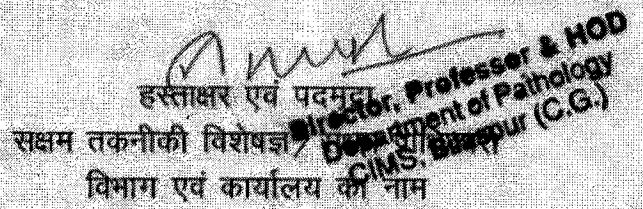 हस्ताक्षर एवं पदमुद्रा
सक्षम तकनीकी विशेषज्ञ/
विभाग एवं कार्यालय का नाम
Director, Professor & HOD
Department of Pathology
CIMS, Bilaspur (C.G.)